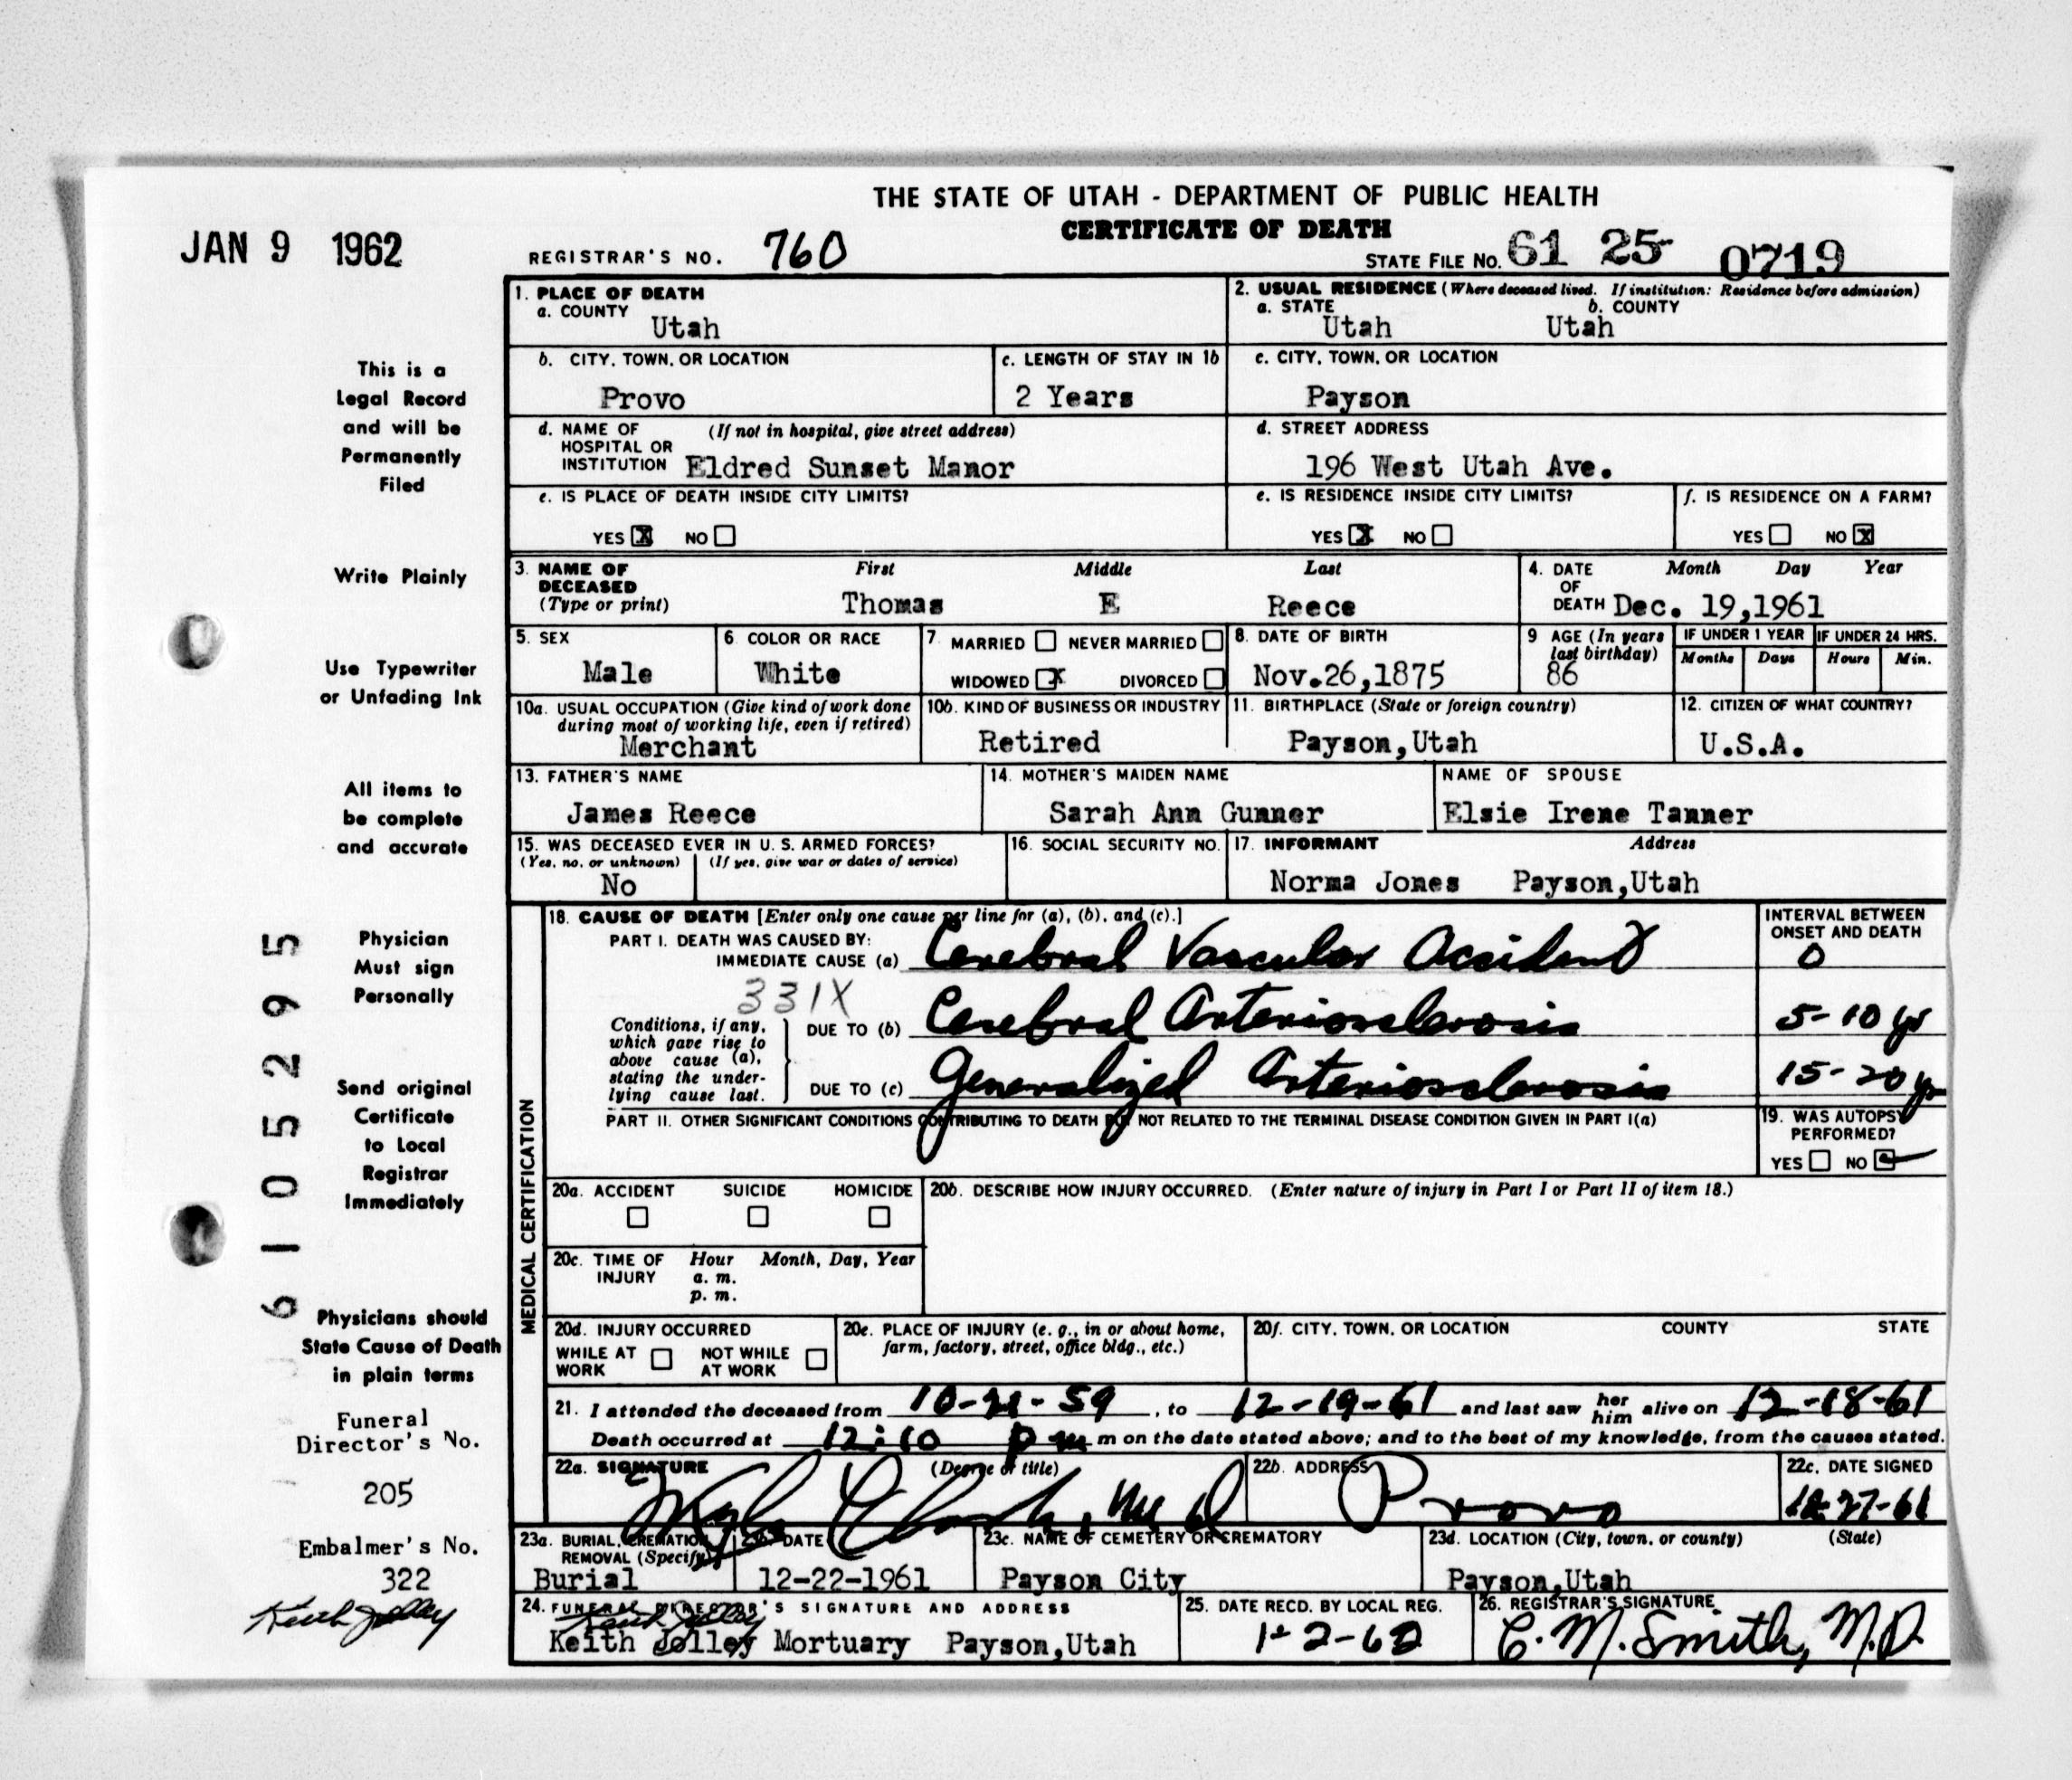 THE STATE OF UTAH - DEPARTMENT OF PUBLIC HEALTH
CERTIFICATE OF DEATH
JAN 9 1962
REGISTRAR'S NO. 760
STATE FILE NO. 61 25 0719
1. PLACE OF DEATH
a. COUNTY
Utah
2. USUAL RESIDENCE (Where deceased lived. If institution: Residence before admission)
a. STATE b. COUNTY
Utah Utah
b. CITY, TOWN, OR LOCATION
Provo
c. LENGTH OF STAY IN 1b
2 Years
c. CITY, TOWN, OR LOCATION
Payson
d. NAME OF (If not in hospital, give street address)
HOSPITAL OR
INSTITUTION Eldred Sunset Manor
d. STREET ADDRESS
196 West Utah Ave.
e. IS PLACE OF DEATH INSIDE CITY LIMITS?
YES X NO
e. IS RESIDENCE INSIDE CITY LIMITS?
YES X NO
f. IS RESIDENCE ON A FARM?
YES NO X
3. NAME OF DECEASED (Type or print)
First Middle Last
Thomas E Reece
4. DATE OF DEATH
Month Day Year
Dec. 19,1961
5. SEX
Male
6. COLOR OR RACE
White
7. MARRIED NEVER MARRIED
WIDOWED X DIVORCED
8. DATE OF BIRTH
Nov.26,1875
9 AGE (In years
last birthday)
86
IF UNDER 1 YEAR
Months Days
IF UNDER 24 HRS.
Hours Min.
10a. USUAL OCCUPATION (Give kind of work done
during most of working life, even if retired)
Merchant
10b. KIND OF BUSINESS OR INDUSTRY
Retired
11. BIRTHPLACE (State or foreign country)
Payson,Utah
12. CITIZEN OF WHAT COUNTRY?
U.S.A.
13. FATHER'S NAME
James Reece
14. MOTHER'S MAIDEN NAME
Sarah Ann Gunner
NAME OF SPOUSE
Elsie Irene Tanner
15. WAS DECEASED EVER IN U. S. ARMED FORCES?
(Yes, no, or unknown) (If yes, give war or dates of service)
No
16. SOCIAL SECURITY NO.
17. INFORMANT Address
Norma Jones Payson,Utah
MEDICAL CERTIFICATION
18. CAUSE OF DEATH [Enter only one cause per line for (a), (b), and (c).]
PART I. DEATH WAS CAUSED BY:
IMMEDIATE CAUSE (a) Cerebral Vascular Accident
331X
Conditions, if any,
which gave rise to
above cause (a),
stating the under-
lying cause last.
DUE TO (b) Cerebral Arteriosclerosis
DUE TO (c) Generalized Arteriosclerosis
INTERVAL BETWEEN
ONSET AND DEATH
0
5-10 yr
15-20 yr
PART II. OTHER SIGNIFICANT CONDITIONS CONTRIBUTING TO DEATH BUT NOT RELATED TO THE TERMINAL DISEASE CONDITION GIVEN IN PART I(a)
19. WAS AUTOPSY
PERFORMED?
YES NO
20a. ACCIDENT SUICIDE HOMICIDE
20b. DESCRIBE HOW INJURY OCCURRED. (Enter nature of injury in Part I or Part II of item 18.)
20c. TIME OF INJURY
Hour Month, Day, Year
a. m.
p. m.
20d. INJURY OCCURRED
WHILE AT WORK NOT WHILE AT WORK
20e. PLACE OF INJURY (e. g., in or about home,
farm, factory, street, office bldg., etc.)
20f. CITY, TOWN, OR LOCATION COUNTY STATE
21. I attended the deceased from 10-21-59, to 12-19-61 and last saw her him alive on 12-18-61
Death occurred at 12:10 p m m on the date stated above; and to the best of my knowledge, from the causes stated.
22a. SIGNATURE (Degree or title)
M D
22b. ADDRESS
Provo
22c. DATE SIGNED
12-27-61
23a. BURIAL, CREMATION,
REMOVAL (Specify)
Burial
23b. DATE
12-22-1961
23c. NAME OF CEMETERY OR CREMATORY
Payson City
23d. LOCATION (City, town, or county) (State)
Payson,Utah
24. FUNERAL DIRECTOR'S SIGNATURE AND ADDRESS
Keith Jolley
Keith Jolley Mortuary Payson,Utah
25. DATE RECD. BY LOCAL REG.
1-2-62
26. REGISTRAR'S SIGNATURE
C. M. Smith, M.D.
This is a
Legal Record
and will be
Permanently
Filed
Write Plainly
Use Typewriter
or Unfading Ink
All items to
be complete
and accurate
Physician
Must sign
Personally
Send original
Certificate
to Local
Registrar
Immediately
Physicians should
State Cause of Death
in plain terms
Funeral
Director's No.
205
Embalmer's No.
322
Keith Jolley
6105295